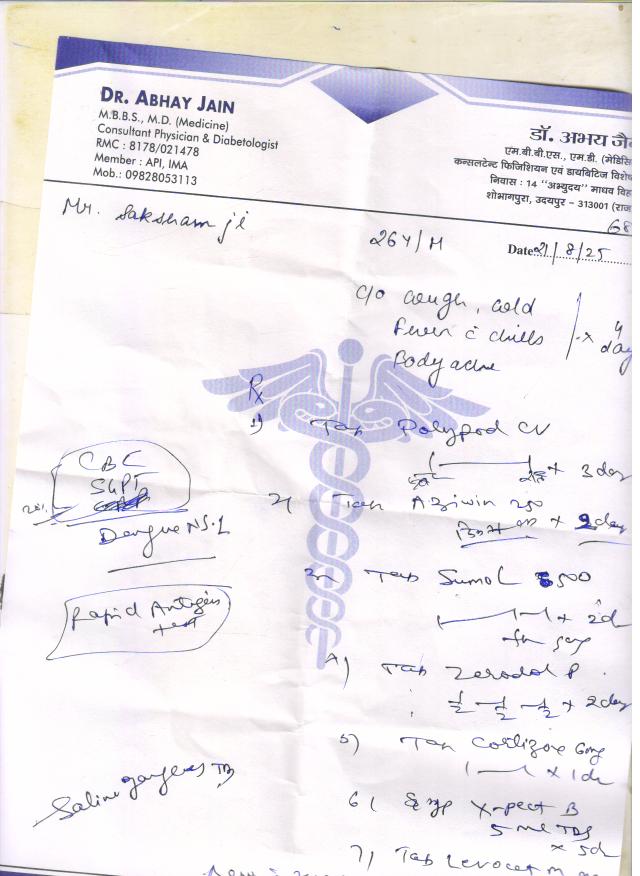 DR. ABHAY JAIN
M.B.B.S., M.D. (Medicine)
Consultant Physician & Diabetologist
RMC : 8178/021478
Member : API, IMA
Mob.: 09828053113
डॉ. अभय
एम.बी.बी.एस., एम.डी.
कन्सलटेन्ट फिजिशियन एवं डायबिटिज
निवास : 14 "अभ्युदय" माधव
शोभागपुरा, उदयपुर – 313001
68
Mr. Saksham ji
26Y/M
Date 21/8/25
c/o cough, cold
Fever c̄ chills
Body ache
x 4
Rx
1) Tab Polypod CV
x 3 day
2) Tab Aziwin 250
x 2 day
Tab Sumol 500
x 2d
4) Tab Zerodol P
½ – ½ – ½ x 2 day
5) Tab Cortizone 6mg
x 1d
6) Syp X-pect B
5 ml TDS
x 5d
7) Tab Levocet M
CBC
SGPT
Dengue NS-1
Rapid Antigen
test
Saline gargles